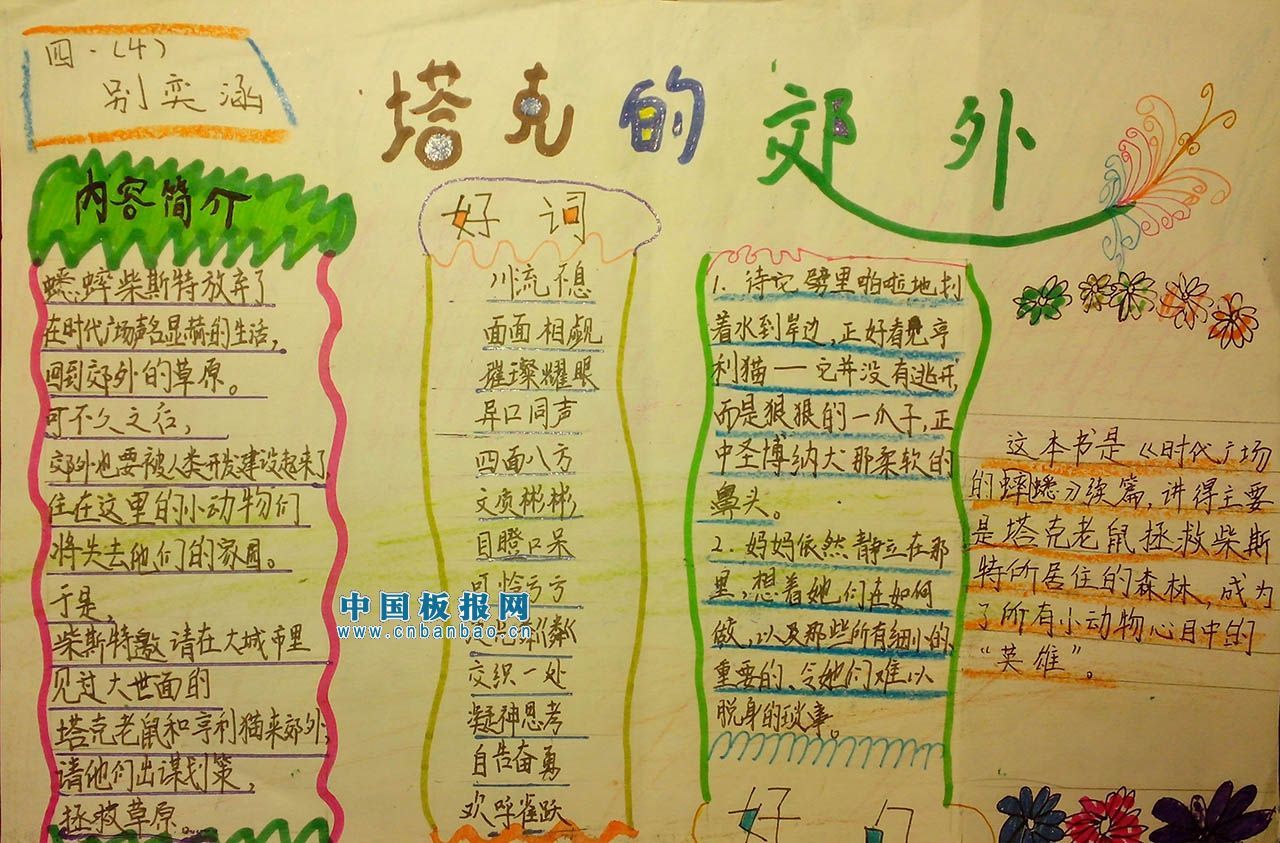 四·(4)
别奕涵
塔克的郊外
内容简介
蟋蟀柴斯特放弃了
在时代广场声名显赫的生活，
回到郊外的草原。
可不久之后，
郊外也要被人类开发建设起来了
住在这里的小动物们
将失去他们的家园。
于是，
柴斯特邀请在大城市里
见过大世面的
塔克老鼠和亨利猫来郊外，
请他们出谋划策，
拯救草原。
好词
川流不息
面面相觑
璀璨耀眼
异口同声
四面八方
文质彬彬
目瞪口呆
交织一处
凝神思考
自告奋勇
欢呼雀跃
1. 待它劈里啪啦地划
着水到岸边，正好看见亨
利猫——它并没有逃开，
而是狠狠的一爪子，正
中圣博纳犬那柔软的
鼻头。
2. 妈妈依然静立在那
里，想着她们在如何
做，以及那些所有细小的、
重要的、令她们难以
脱身的琐事。
好句
这本书是《时代广场
的蟀蟋》续篇，讲得主要
是塔克老鼠拯救柴斯
特所居住的森林，成为
了所有小动物心目中的
“英雄”。
中国板报网
www.cnbanbao.cn